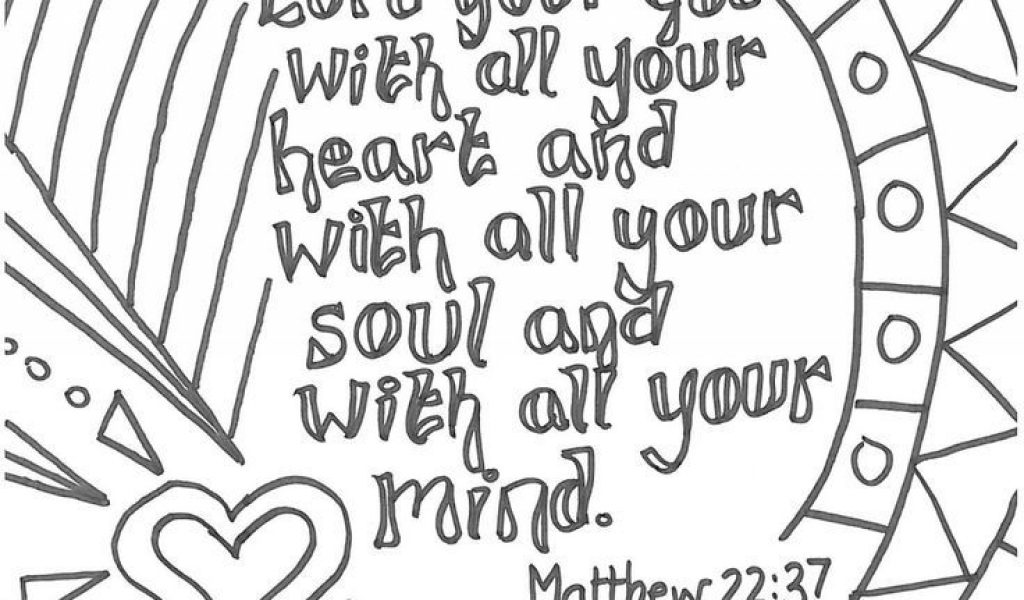 Lord your God
with all your
heart and
with all your
soul and
with all your
mind.
Matthew 22:37